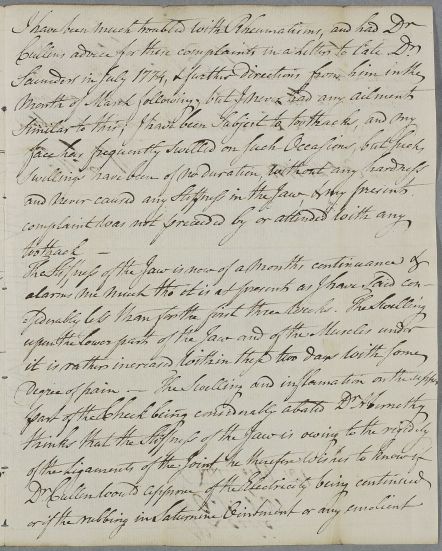 I have been much troubled with Rheumatisms, and had Dr
Cullens advice for these complaints in a letter to Late Dr
Saunders in July 1774, & further directions from him in the
Month of March following, but I never had any ailment
Similar to this, I have been Subject to toothachs, and my
face has frequently swelled on such Occasions, but such
Swellings have been of no duration, without any hardness
and never caused any Stiffness in the Jaw, & my present
complaint was not preceeded by or attended with any
toothach —
The Stiffness of the Jaw is now of a Months continuance &
alarms me much tho it is at present as I have said con-
siderably less than for the first three Weeks. The Swelling
upon the Lower parts of the Jaw and of the Muscles under
it is rather increased within these two days with some
degree of pain — The Swelling and inflamation on the upper
part of the Cheek being considerably abated Dr Abernethy
thinks that the Stiffness of the Jaw is owing to the rigidity
of the Ligaments of the Joint, he therefore wishes to know if
Dr Cullen would approve of the Electricity being continued
or if the rubbing in Saturnine Ointment or any emolient